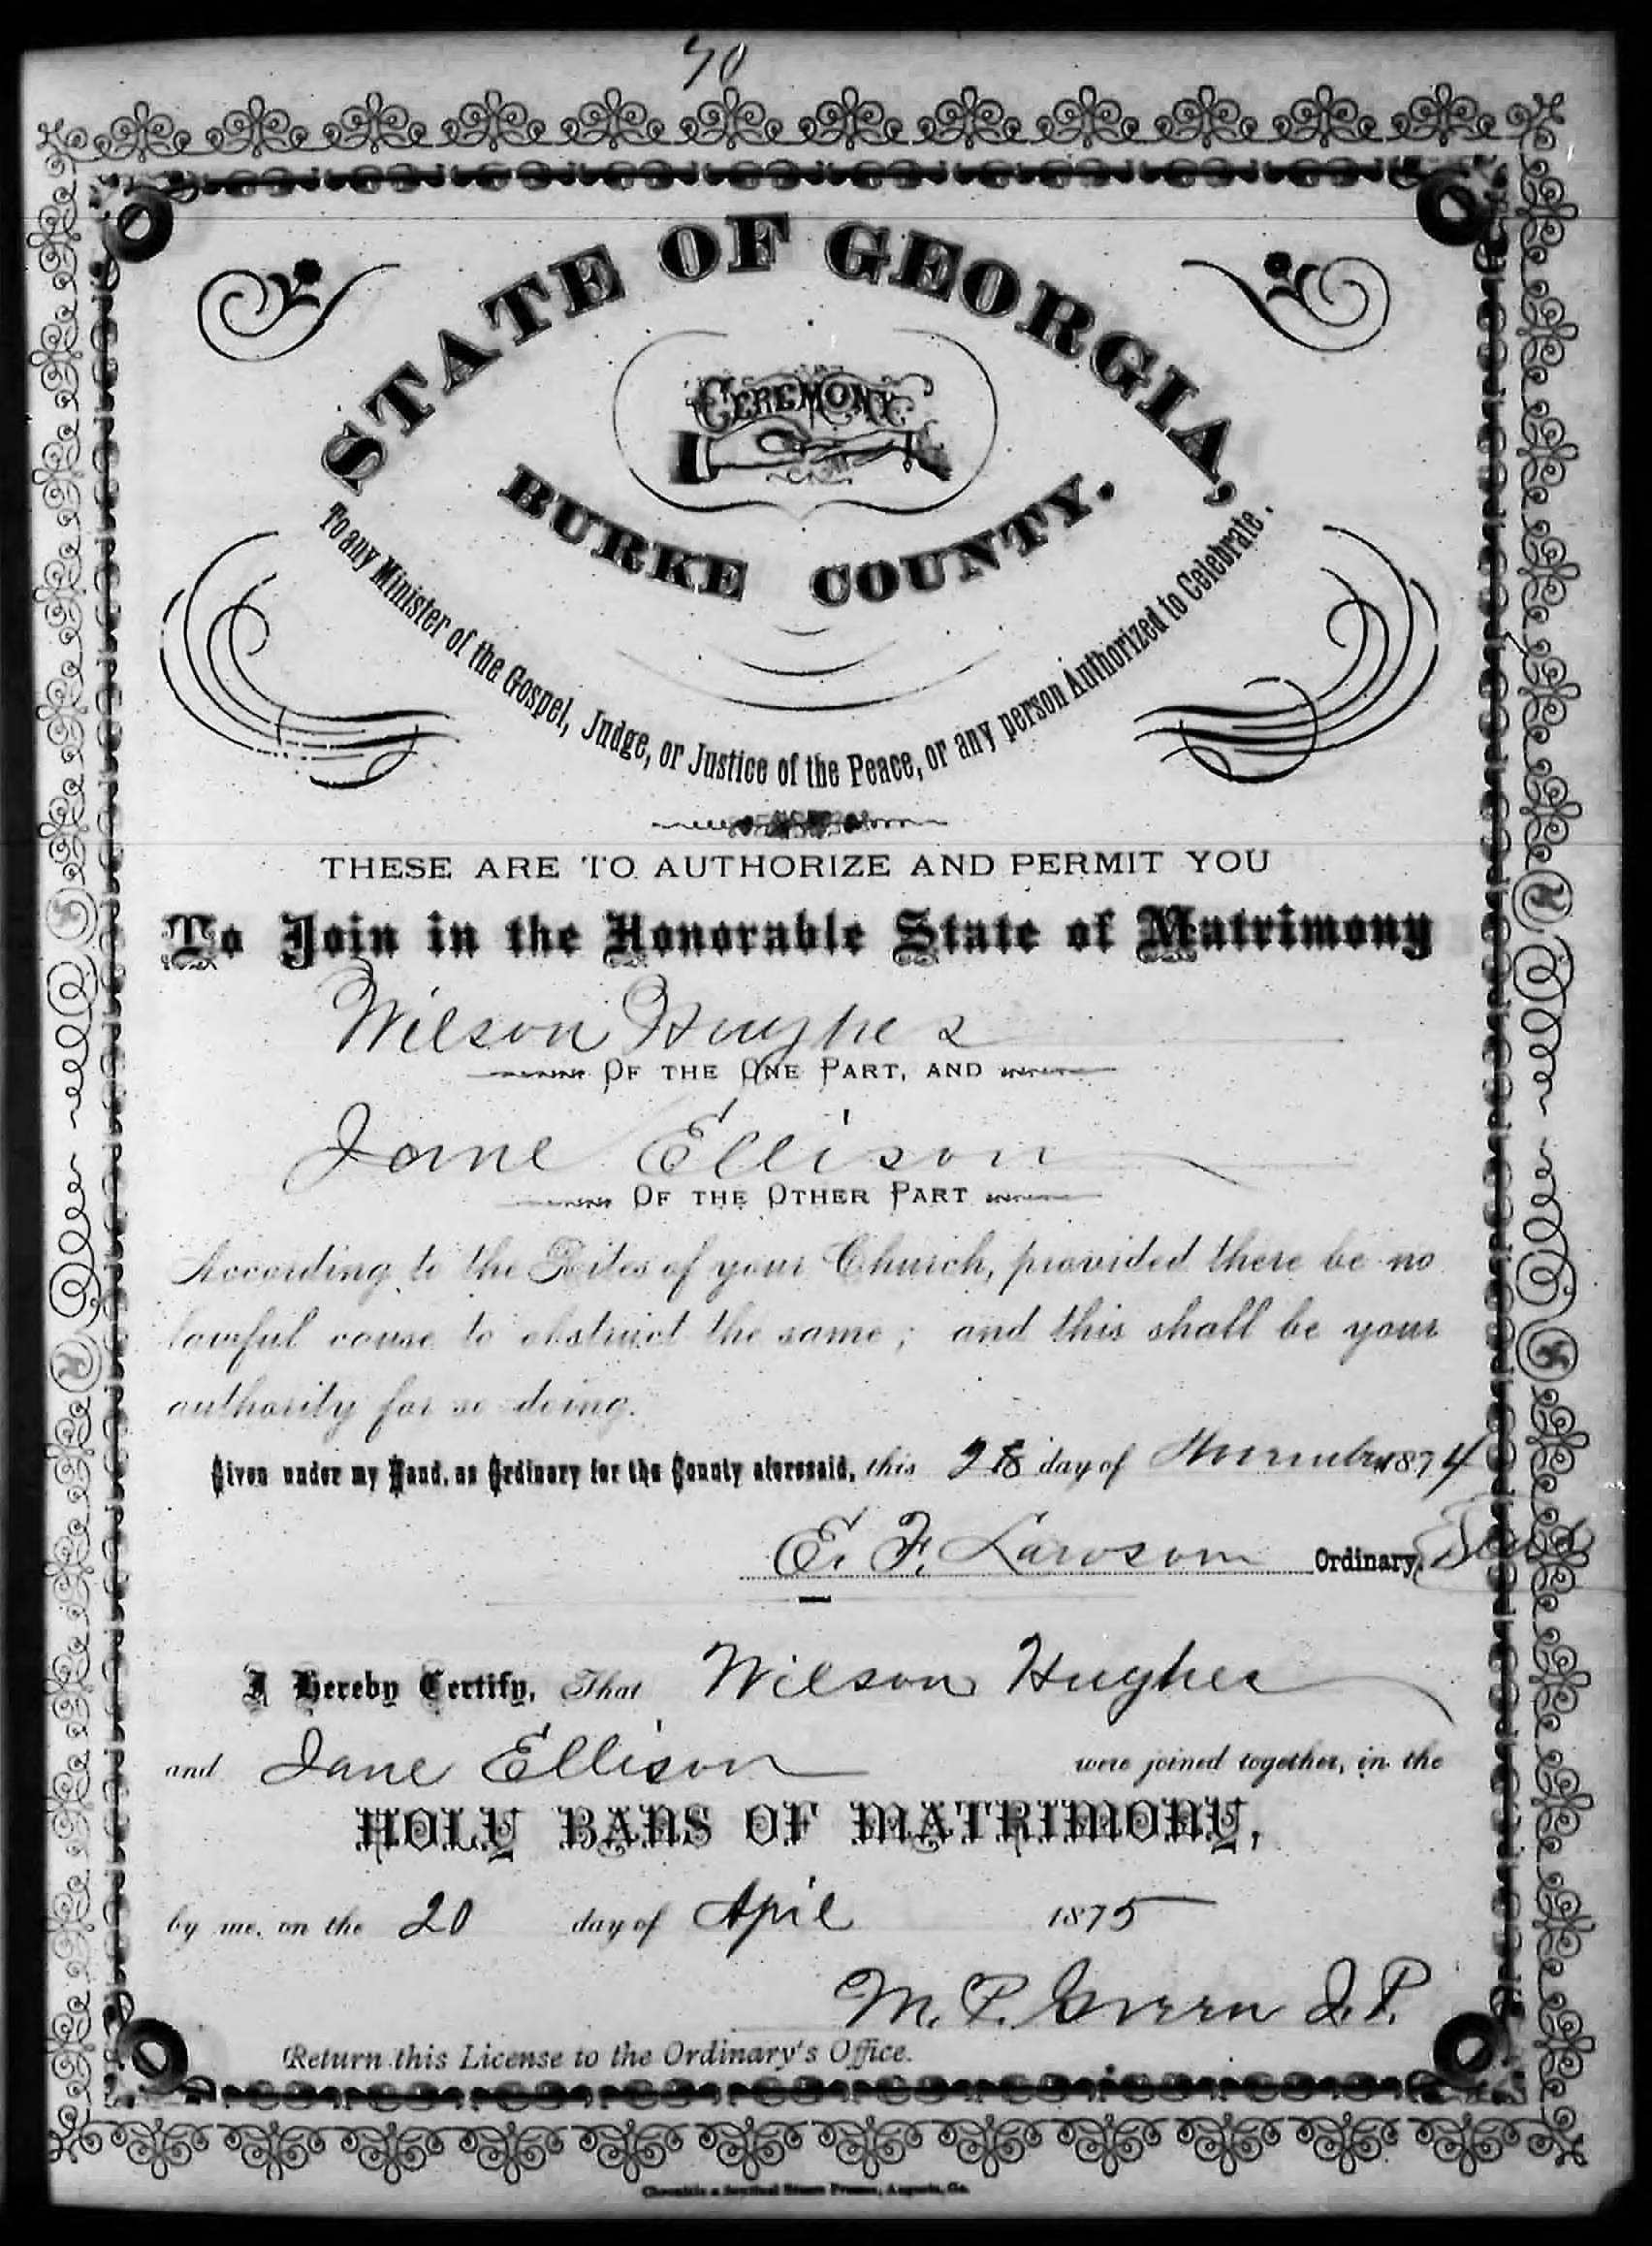 70
STATE OF GEORGIA,
CEREMONY
BURKE COUNTY.
To any Minister of the Gospel, Judge, or Justice of the Peace, or any person Authorized to Celebrate.
THESE ARE TO AUTHORIZE AND PERMIT YOU
To Join in the Honorable State of Matrimony
Wilson Hughes
OF THE ONE PART, AND
Jane Ellison
OF THE OTHER PART
According to the Rites of your Church, provided there be no
lawful cause to obstruct the same; and this shall be your
authority for so doing.
Given under my Hand, as Ordinary for the County aforesaid, this 28 day of November 1874
E. F. Lawson Ordinary.
I Hereby Certify, That Wilson Hughes
and Jane Ellison were joined together, in the
HOLY BANS OF MATRIMONY,
by me, on the 20 day of April 1875
M. P. Green J.P.
Return this License to the Ordinary's Office.
Chronicle & Sentinel Steam Presses, Augusta, Ga.